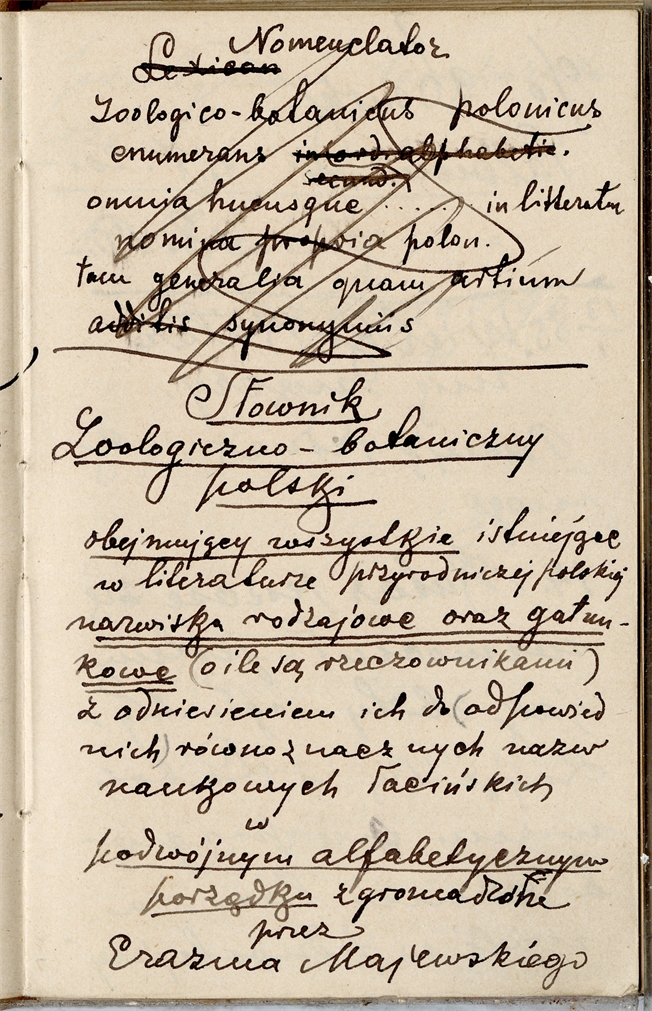 Nomenclator
Lexicon
Zoologico-botanicus polonicus
enumerans in ordi alphabetic.
secund.
omnia hucusque ...... in litteratu
nomina propria polon.
tam generalia quam artium
additis synonymiis
Słownik
Zoologiczno-botaniczny
polski
obejmujący wszystkie istniejące
w literaturze przyrodniczej polskiej
nazwiska rodzajowe oraz gatun-
kowe (o ile są rzeczownikami)
z odniesieniem ich do (odpowied
nich) równoznacznych nazw
naukowych łacińskich
w
podwójnym alfabetycznym
porządku zgromadzone
przez
Erazma Majewskiego